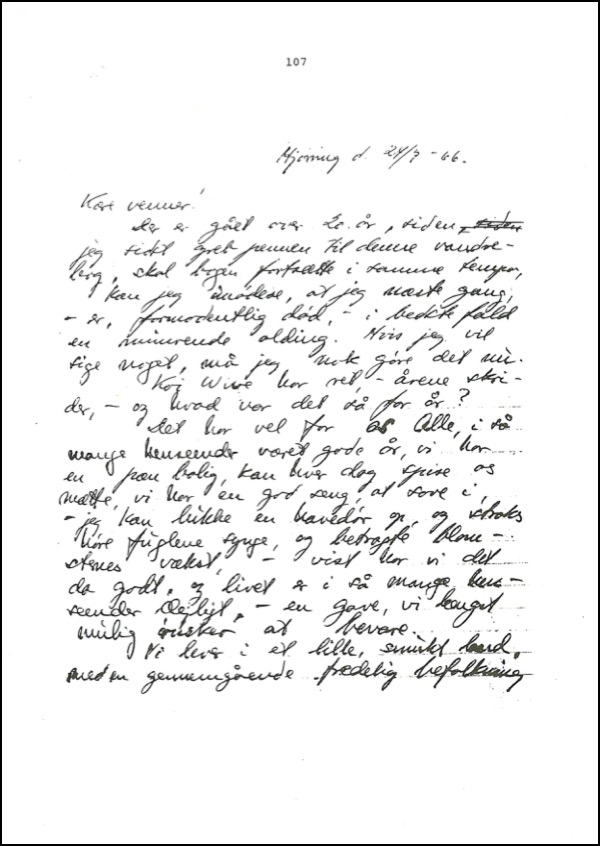 107
Hjørring d. 24/7 - 66.
Kære venner!
Der er gået over 20 år, siden, siden
jeg sidst greb pennen til denne vandre-
bog, skal bogen fortsætte i samme tempo,
kan jeg imødese, at jeg næste gang,
- er, formodentlig død, - i bedste fald
en mimrende olding. Hvis jeg vil
sige noget, må jeg nok gøre det nu.
Kaj Wive har ret, - årene skri-
der, - og hvad var det så for år?
Det har vel for os Alle, i så
mange henseender været gode år, vi har
en pæn bolig, kan hver dag spise os
mætte, vi har en god seng, at sove i,
- jeg kan lukke en havedør op, og straks
høre fuglene synge, og betragte blom-
sternes vækst, - vist har vi det
da godt, og livet er i så mange hen-
seender dejligt, - en gave, vi længst
mulig ønsker at bevare.
Vi lever i et lille, smukt land,
med en gennemgående fredelig befolkning